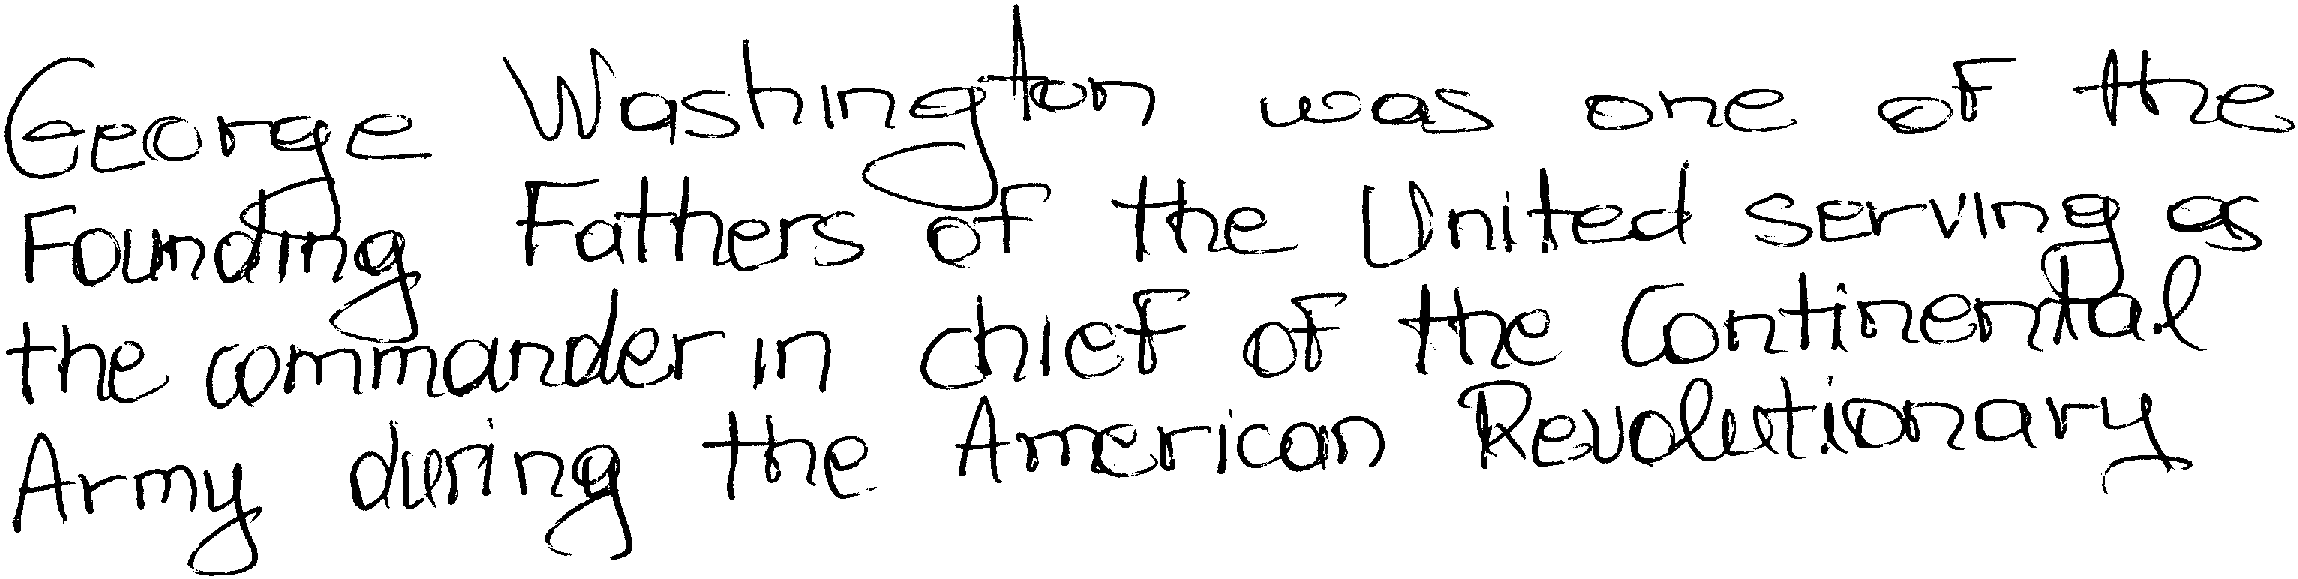 George Washington was one of the
Founding Fathers of the United serving as
the commander in chief of the Continental
Army during the American Revolutionary